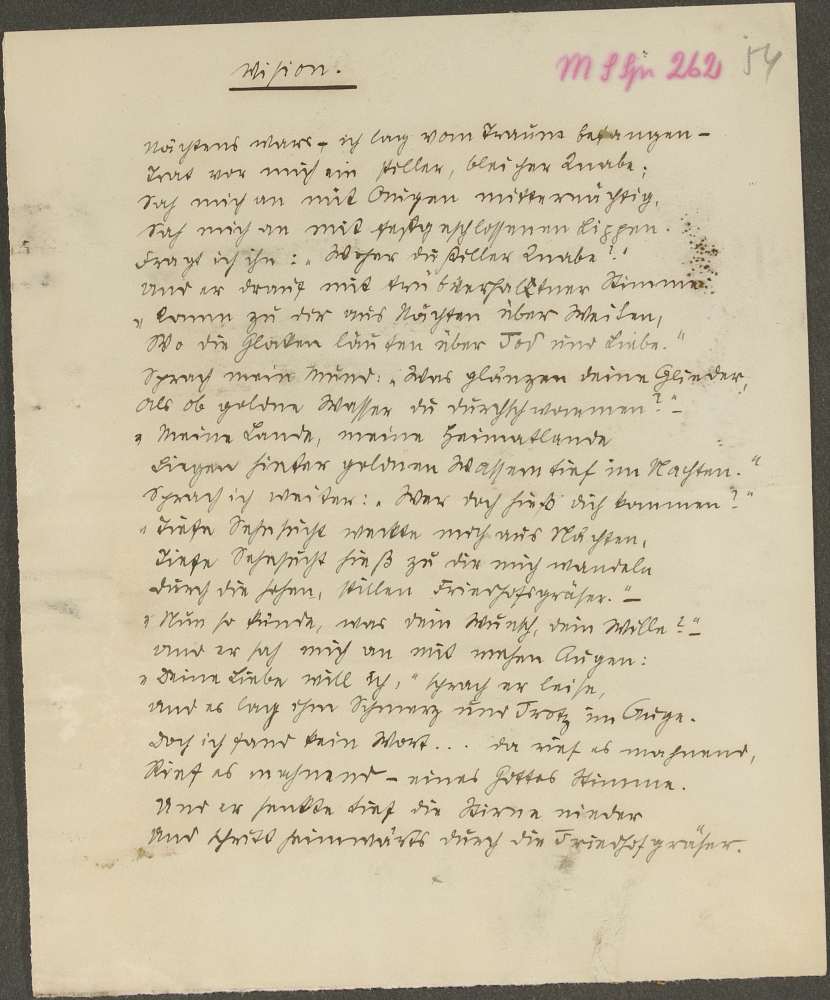 Vision.
M S Gu 262 54
Nächtens wars – ich lag vom Traume befangen –
Trat vor mich ein stiller, bleicher Knabe;
Sah mich an mit Augen mitternächtig,
Sah mich an mit festgeschlossenen Lippen.
Fragt ich ihn: „Woher du stiller Knabe?“
Und er drauf mit trüb verhaltner Stimme
„Komm zu dir aus Nächten über Weiten,
Wo die Glocken läuten über Tod und Liebe.“
Sprach mein Mund: „Was glänzen deine Glieder,
Als ob goldne Wasser du durchschwommen?“ –
„Meine Lande, meine Heimatlande
Liegen hinter goldnen Wassern tief im Nachten.“
Sprach ich weiter: „Wer doch hieß dich kommen?“
„Tiefe Sehnsucht weckte mich aus Nächten,
Tiefe Sehnsucht hieß zu dir mich wandeln
Durch die hohen, stillen Friedhofsgräser.“ –
„Nun so künde, was dein Wunsch, dein Wille?“ –
Und er sah mich an mit wehen Augen:
„Deine Liebe will ich,“ sprach er leise,
Und es lag ihm Schmerz und Trotz im Auge.
Doch ich fand kein Wort... da rief es mahnend,
Rief es mahnend – eines Gottes Stimme.
Und er senkte tief die Stirne nieder
Und schritt heimwärts durch die Friedhofgräser.